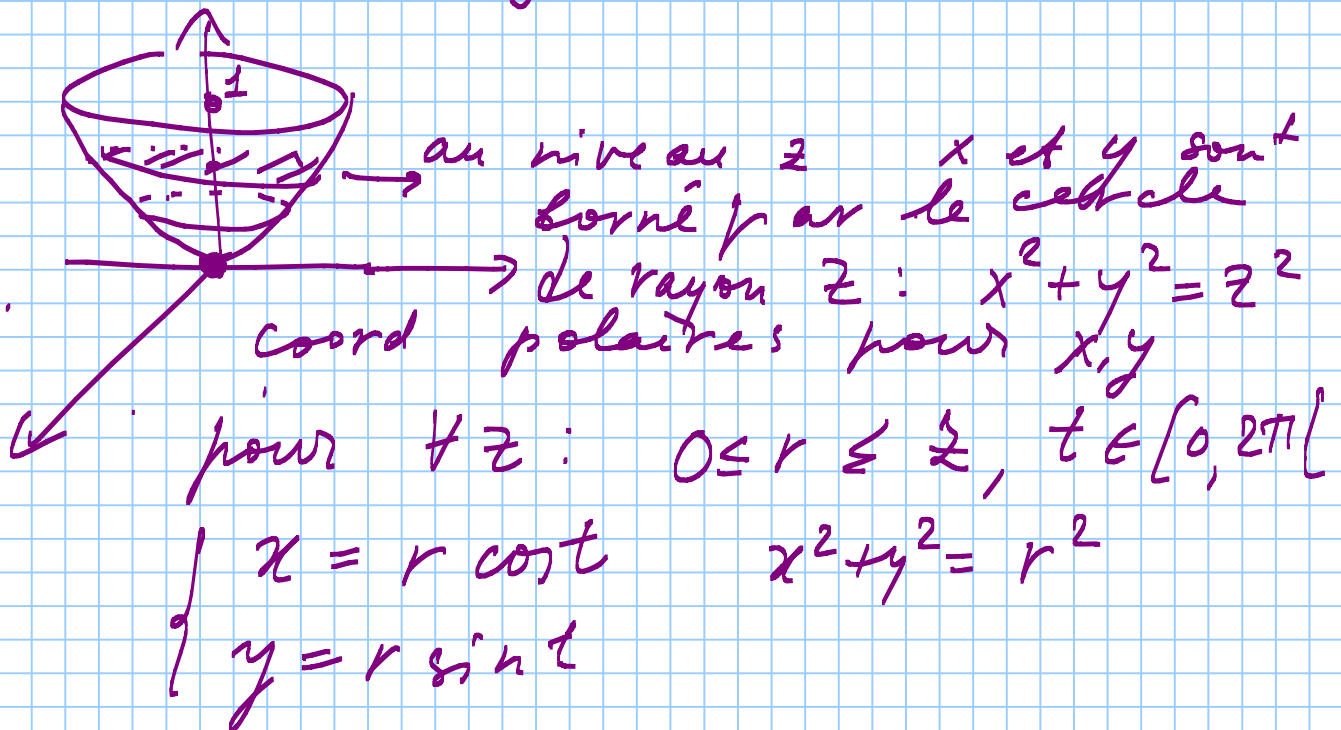 1
au niveau z x et y sont
borné par le cercle
de rayon z : x² + y² = z²
coord polaires pour x, y
pour ∀ z : 0 ≤ r ≤ z, t ∈ [0, 2π[
{ x = r cos t x² + y² = r²
y = r sin t